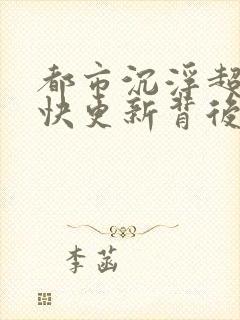 都市沉浮超
快更新背後
李菡